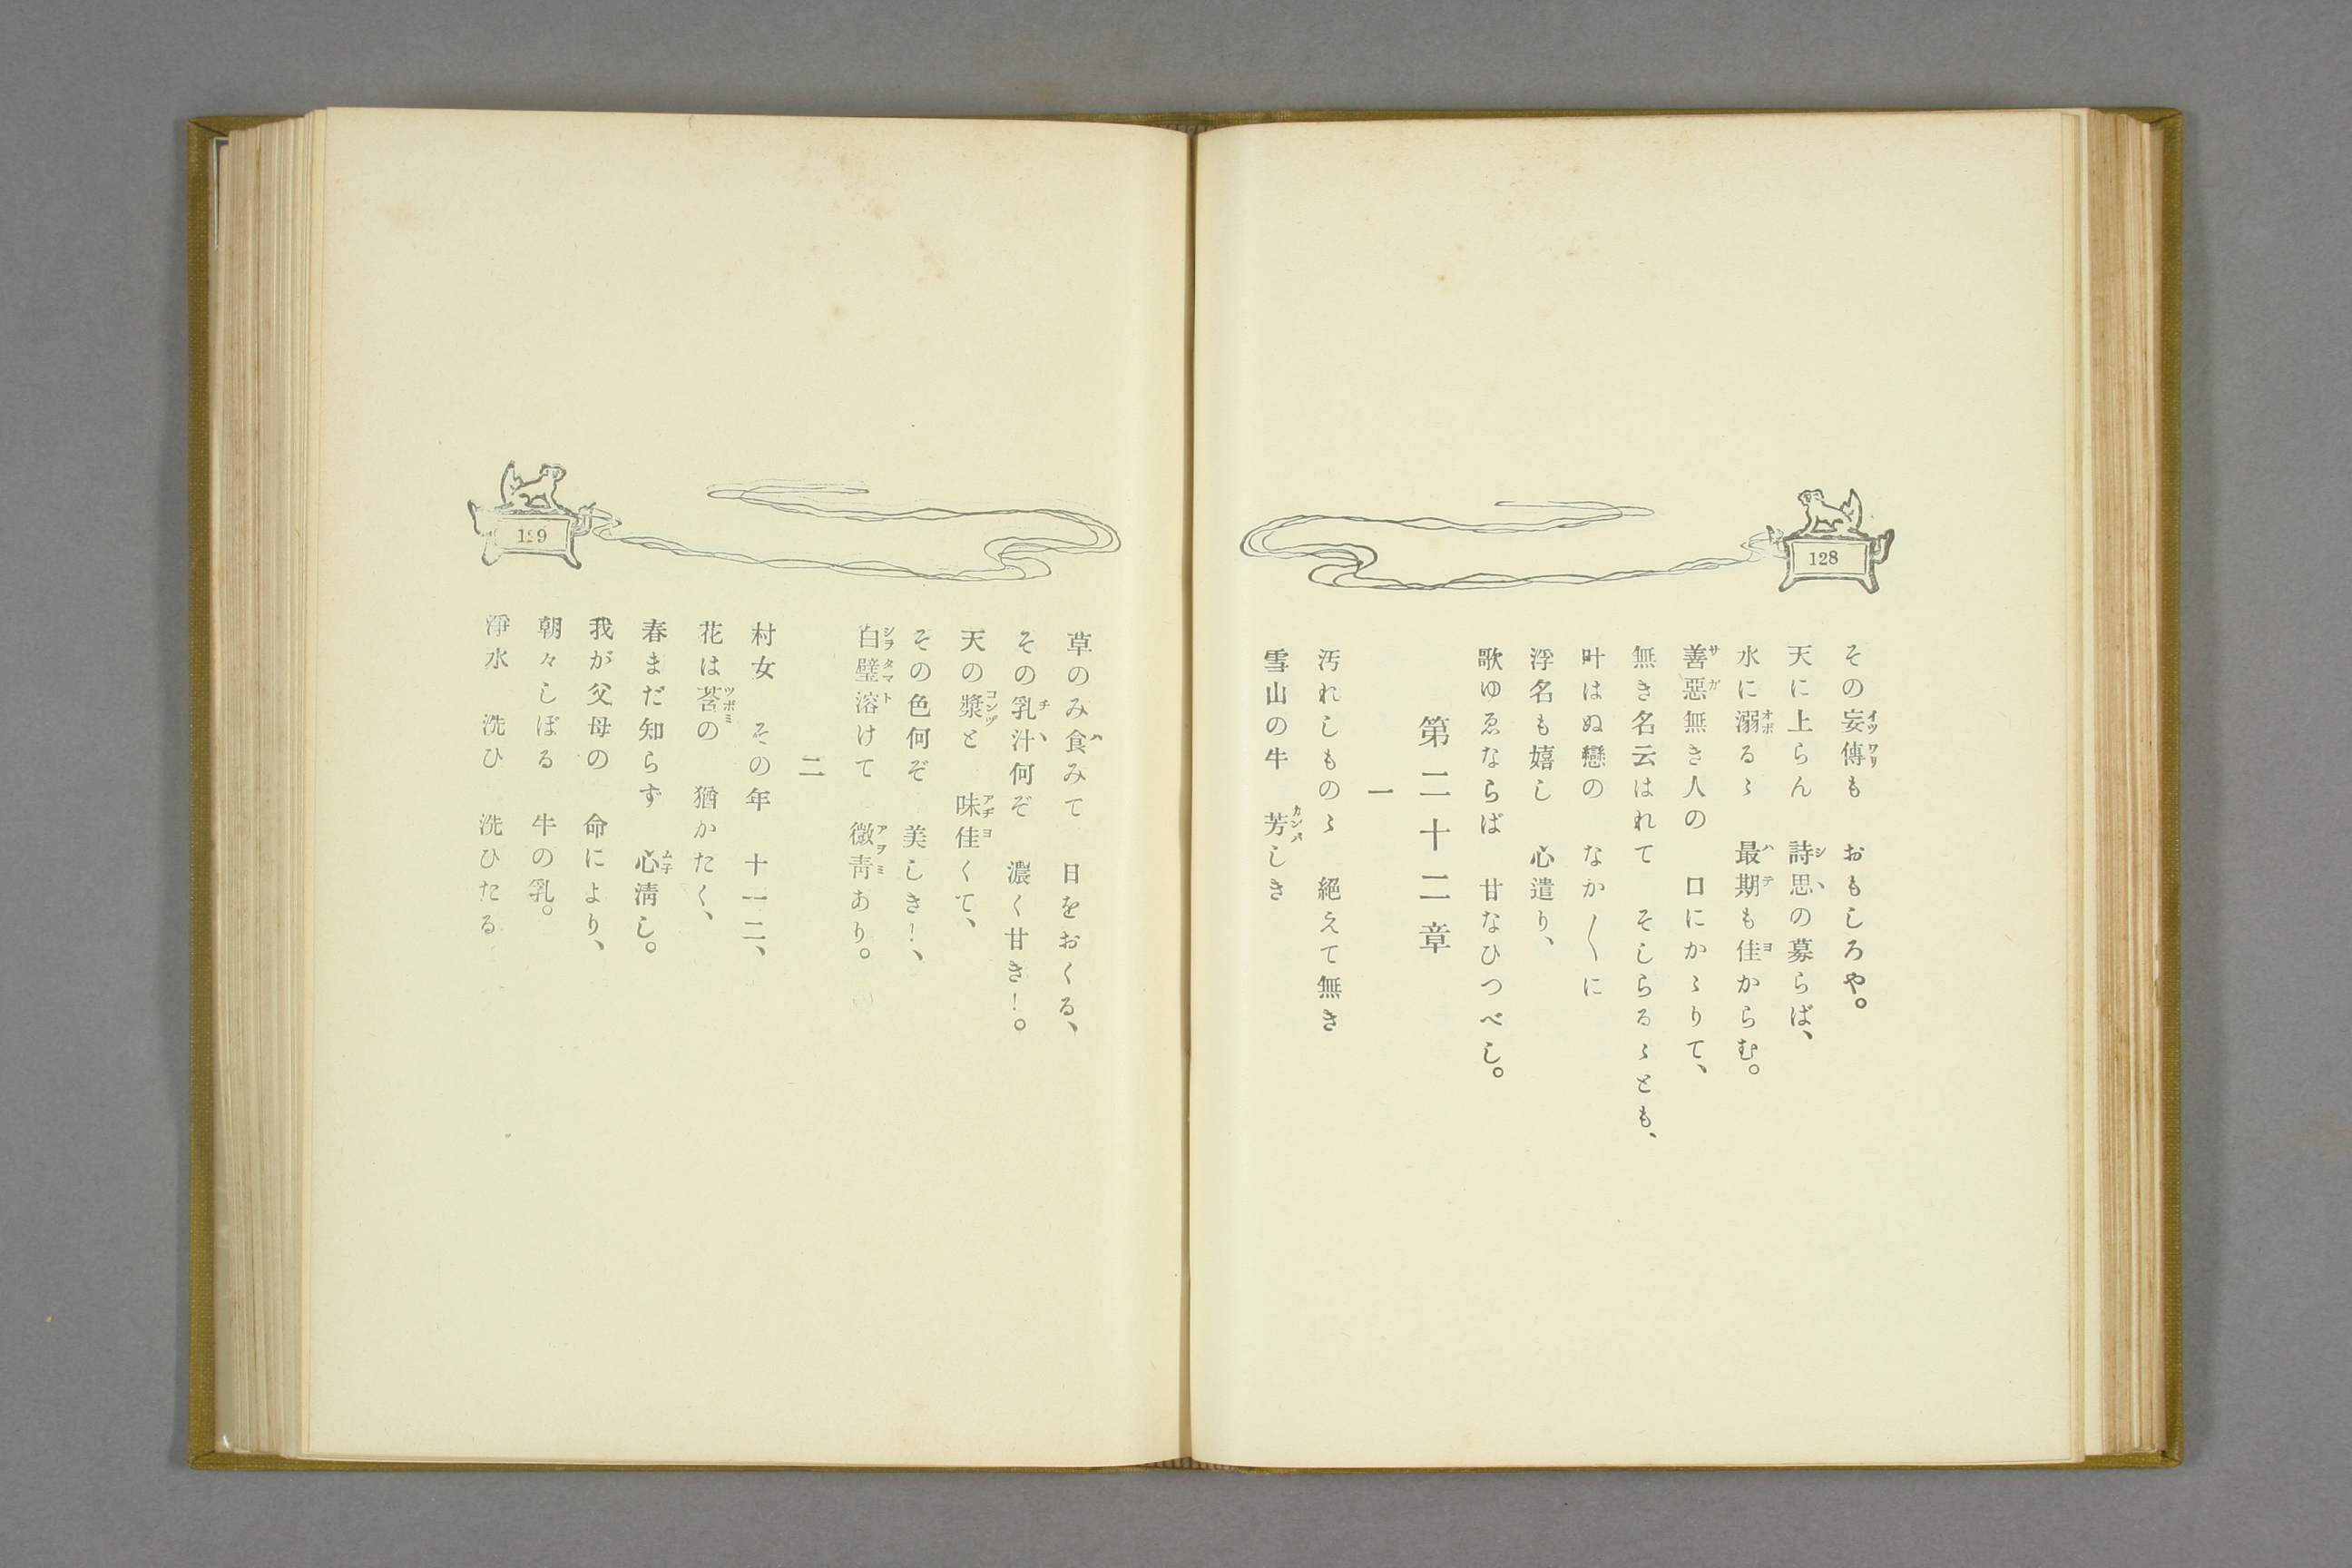 128
その妄傳も　おもしろや。
天に上らん　詩思の募らば、
水に溺るゝ　最期も佳からむ。
善惡無き人の　口にかゝりて、
無き名云はれて　そしらるゝとも、
叶はぬ戀の　なか〳〵に
浮名も嬉し　心遣り、
歌ゆゑならば　甘なひつべし。
第二十二章
一
汚れしものゝ　絕えて無き
雪山の牛　芳しき
129
草のみ食みて　日をおくる、
その乳汁何ぞ　濃く甘き!。
天の漿と　味佳くて、
その色何ぞ　美しき!、
白璧溶けて　微靑あり。
二
村女　その年　十一二、
花は莟の　猶かたく、
春まだ知らず　心淸し。
我が父母の　命により、
朝々しぼる　牛の乳。
淨水　洗ひ　洗ひたる